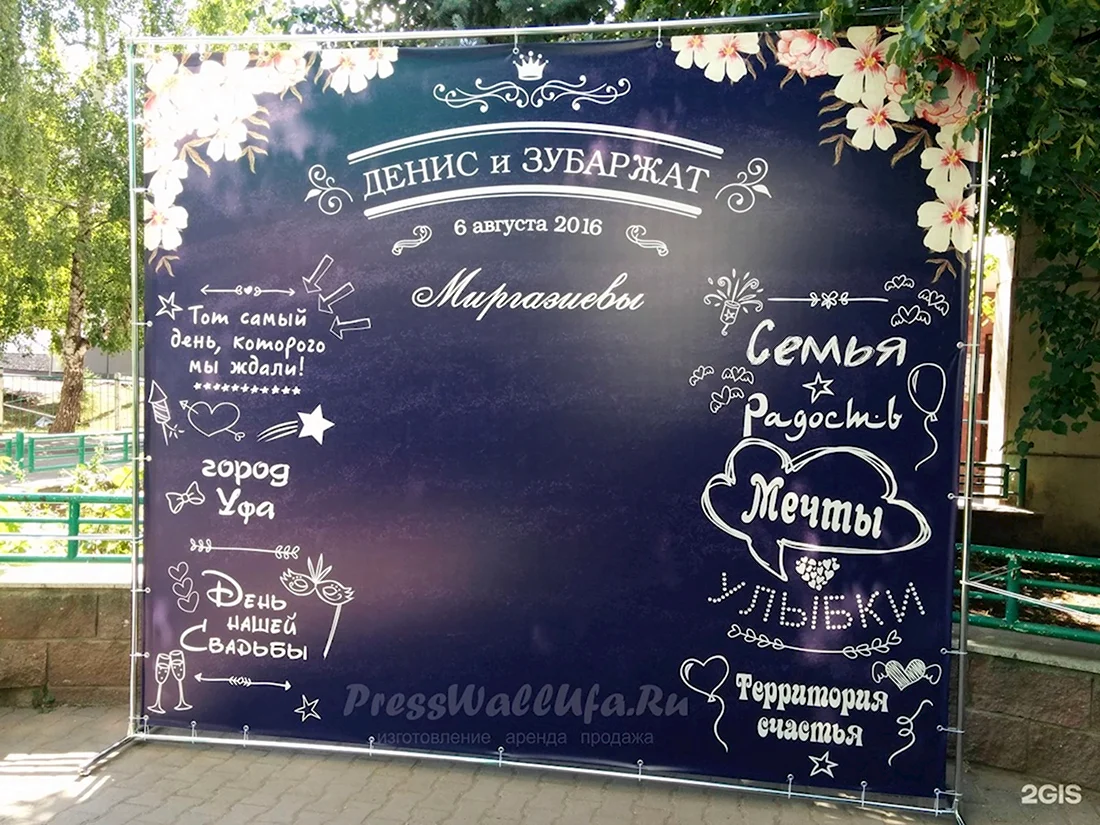 ДЕНИС и ЗУБАРЖАТ
6 августа 2016
Миргазиевы
Тот самый
день, которого
мы ждали!
город
Уфа
День
нашей
Свадьбы
Семья
Радость
Мечты
УЛЫБКИ
Территория
счастья
PressWallUfa.Ru
изготовление аренда продажа
2GIS